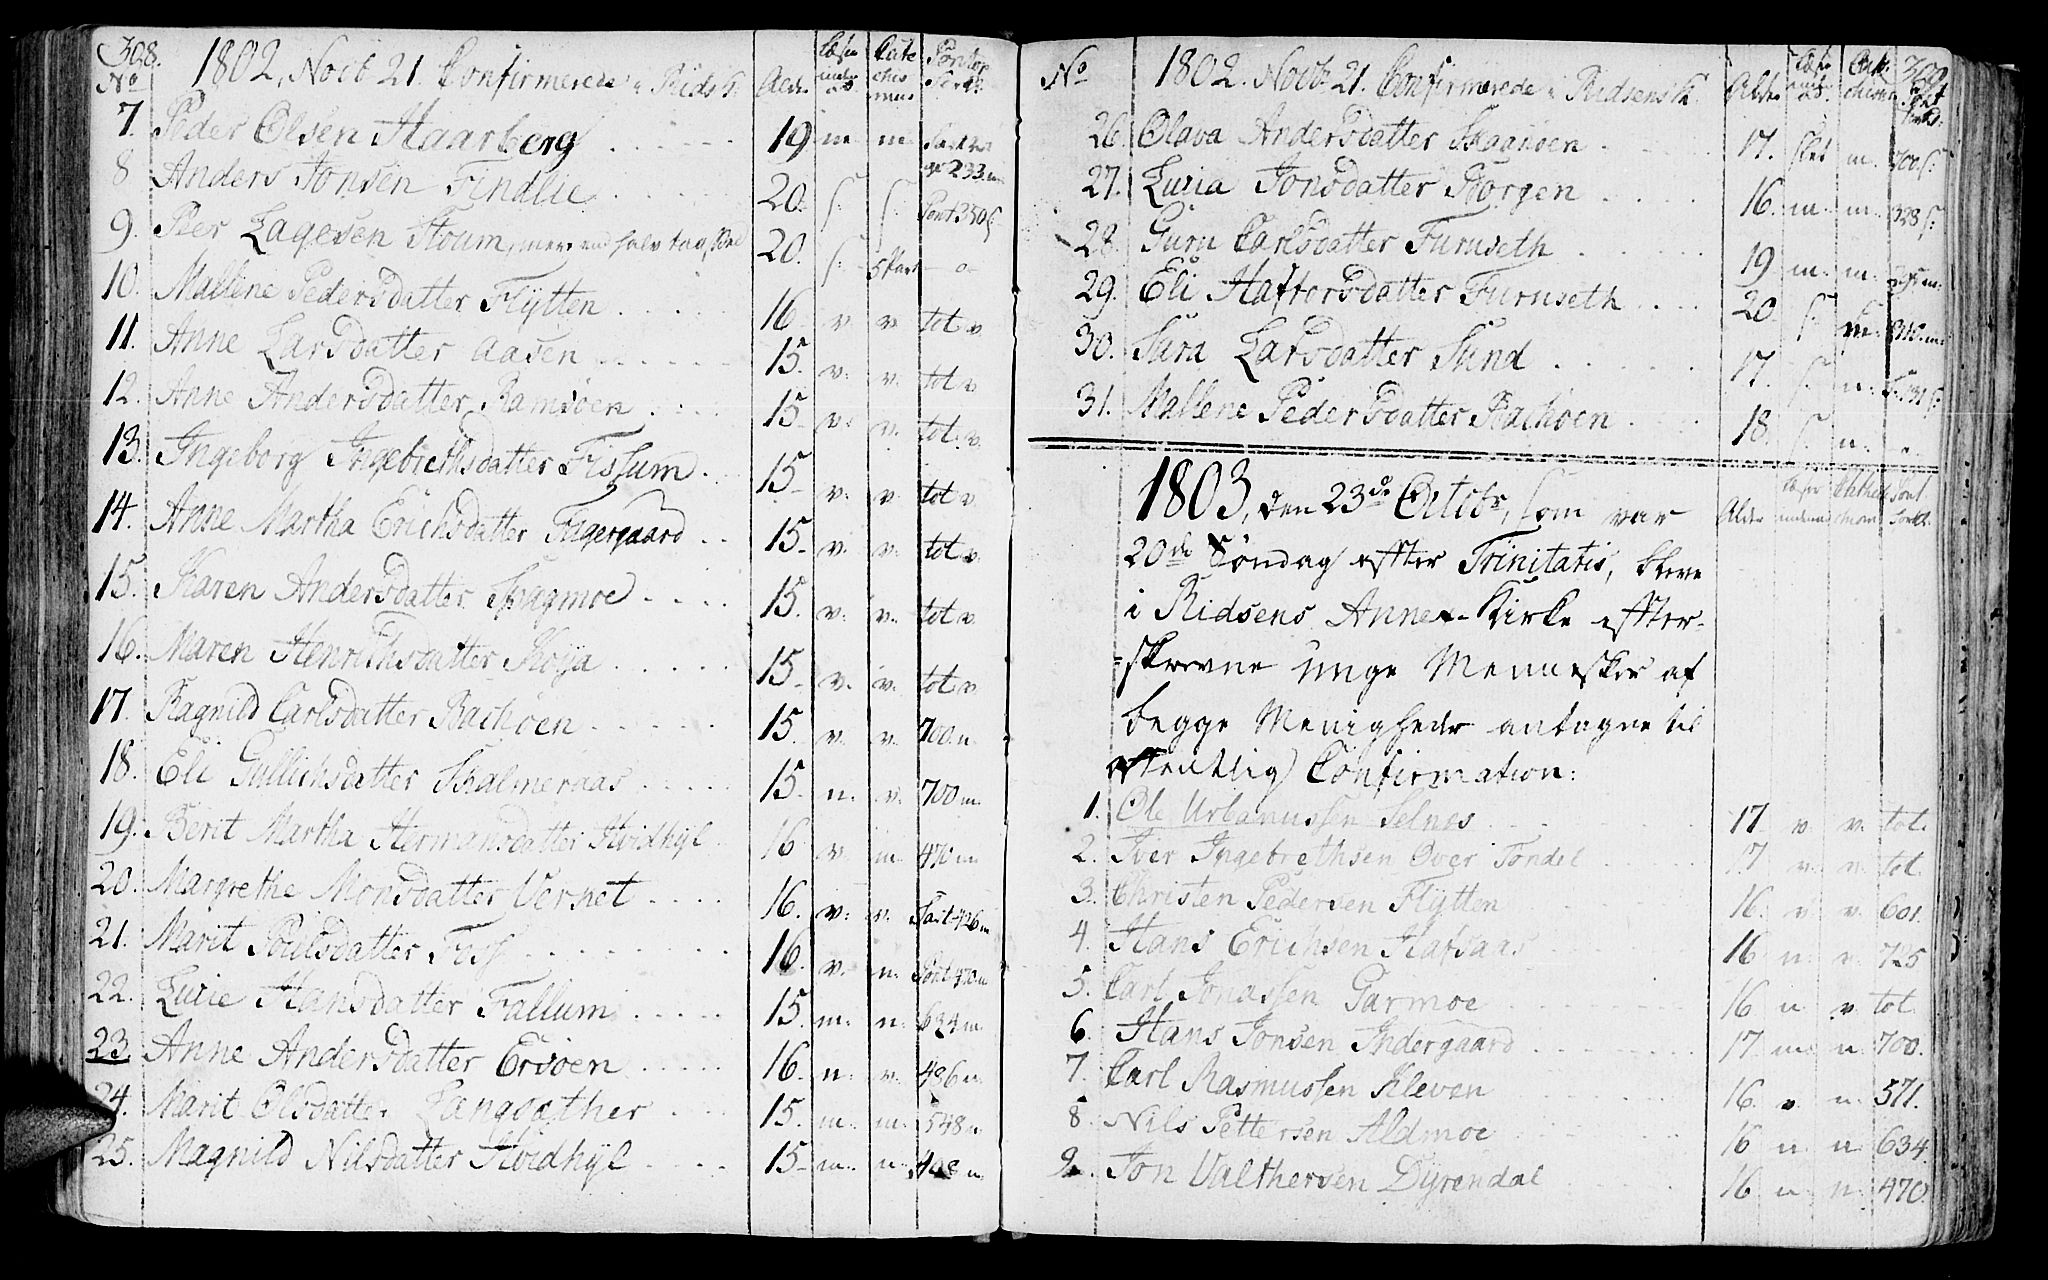 308.
1802, Novb 21. Confirmerede i Ridsens K.
No Alder Læse inden ad Cate chis mus Pontop
7. Peder Olsen Haarberg 19 m. m.
8 Anders Jonsen Findlie 20. s. s. Pont 350 s
9. Peer Lagesen Stoum, mer end halv 20. s. o
10. Mallene Pedersdatter Flÿtten 16 v v tot v
11. Anne Larsdatter Aasen 15. v. v. tot v
12. Anne Andersdatter Ramsøen 15 v. v. tot. v.
13. Ingeborg Ingebrethsdatter Fissum 15 v. v. tot v
14. Anne Martha Erichsdatter Fagergaard 15 v. v. tot v.
15. Karen Andersdatter Skagmoe 15. v. v. tot v.
16. Maren Henrichsdatter Skoÿa 15 v. v. tot. v.
17. Ragnild Carlsdatter Bachøen 15 v. v. 700. n.
18. Eli Gullichsdatter Skalmeraas 15 n. v. 700 m.
19. Berit Martha Hermansdatter Hvidhÿl 16 v. m. 470 m.
20. Margrethe Monsdatter Vernet 16. v. v.
21. Marit Poulsdatter Fiss 16. v. n. Pont 470 n
22. Lucie Hansdatter Fallum 15 m. n. 634 m.
23. Anne Andersdatter Ersøen 16 n. v. 486 n.
24. Marit Olsdatter Langsæther 15. m. m. 548 n
25. Magnild Nilsdatter Hvidhÿl 15 m. n. 408 n.
No 1802. Novb. 21. Confirmerede i Ridsens K. Alder
26. Olava Andersdatter Skaanøen 17. slet m. 700 s.
27. Lucia Jonsdatter Storgen 16. m. m. 328 s.
28. Guru Carlsdatter Furuseth 19 m. m.
29. Eli Haftorsdatter Furuseth 20 s. m.
30. Sura Larsdatter Sund 17. s. n.
31. Mallene Pedersdatter Bachøen 18. s. n.
1803, den 23de Octobr, som var Alder
20de Søndag efter Trinitatis, bleve
i Ridsens Annex-Kirke efter-
skrevne unge Mennesker af
begge Menigheder antagne til
offentlig Confirmation:
1. Ole Urbanussen Selnes 17 v v. tot.
2. Iver Ingebrethsen Over Tøndel 17 v. v. tot.
3. Christen Pedersen Flÿtten 16. v v. 601.
4. Hans Erichsen Hafsaas 16 n. v. 725
5. Carl Jonassen Garmoe 16 n v tot.
6. Hans Jonsen Indergaard 17. m. n. 700.
7. Carl Rasmussen Kleven 16. v. n. 571.
8 Nils Pettersen Aldmoe 16 n n 634.
9. Jon Valthersen Dÿrendal 16 n n. 470.